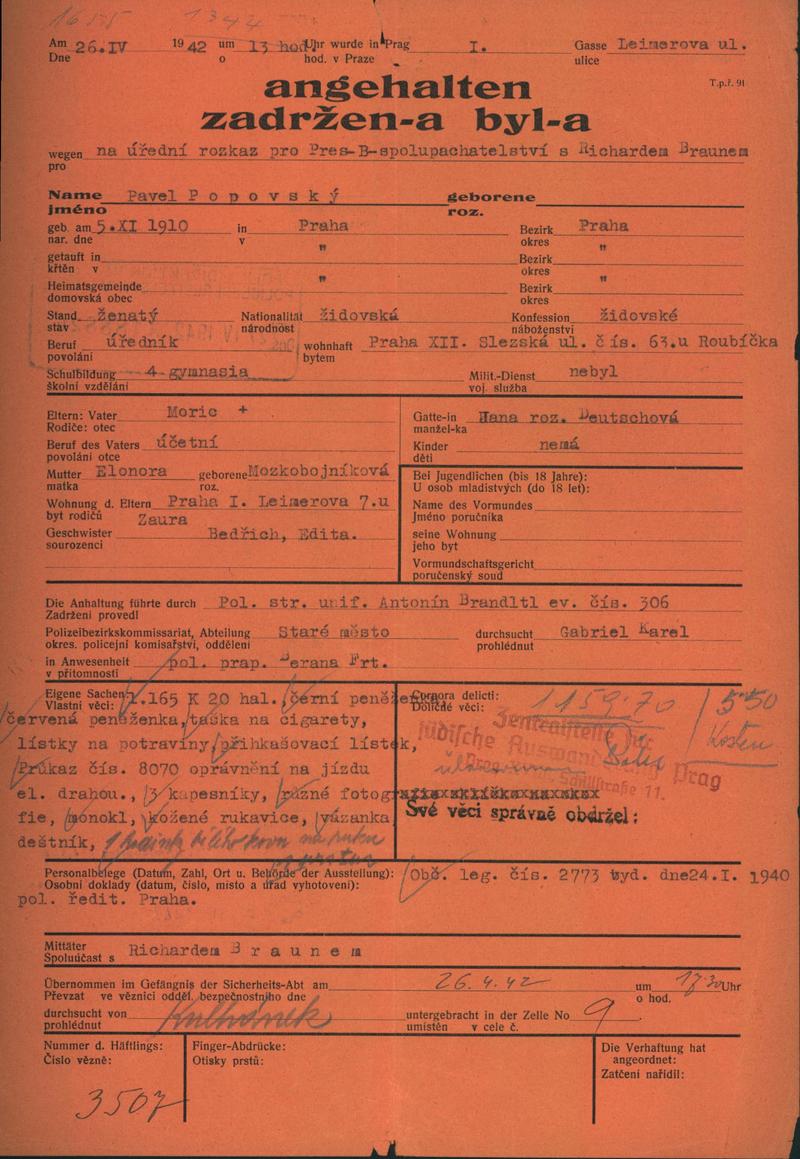 1655 1344
Am 26.IV 1942 um 13 hod Uhr wurde in Prag I. Gasse Leimerova ul.
Dne o hod. v Praze ulice
angehalten
T.p.ř. 91
zadržen-a byl-a
wegen na úřední rozkaz pro Pres-B-spolupachatelství s Richardem Braunem
pro
Name Pavel P o p o v s k ý geborene
jméno roz.
geb. am 5.XI 1910 in Praha Bezirk Praha
nar. dne v okres
getauft in " Bezirk "
křtěn v okres
Heimatsgemeinde " Bezirk "
domovská obec okres
Stand ženatý Nationalität židovská Konfession židovské
stav národnost náboženství
Beruf úředník wohnhaft Praha XII. Slezská ul. čís. 63.u Roubíčka
povolání bytem
Schulbildung 4 gymnasia Milit.-Dienst nebyl
školní vzdělání voj. služba
Eltern: Vater Moric +
Rodiče: otec
Beruf des Vaters účetní
povolání otce
Mutter Elonora geborene Mozkobojníková
matka roz.
Wohnung d. Eltern Praha I. Leimerova 7.u
byt rodičů Zaura
Geschwister Bedřich, Edita.
sourozenci
Gatte-in Hana roz. Deutschová
manžel-ka
Kinder nemá
děti
Bei Jugendlichen (bis 18 Jahre):
U osob mladistvých (do 18 let):
Name des Vormundes
Jméno poručníka
seine Wohnung
jeho byt
Vormundschaftsgericht
poručenský soud
Die Anhaltung führte durch Pol. str. unif. Antonín Brandltl ev. čís. 306
Zadržení provedl
Polizeibezirkskommissariat, Abteilung Staré město durchsucht Gabriel Karel
okres. policejní komisařství, oddělení prohlédnut
in Anwesenheit pol. prap. Berana Frt.
v přítomnosti
Eigene Sachen: 1.165 K 20 hal. černí peněžen
Vlastní věci:
červená peněženka, taška na cigarety,
lístky na potraviny, přihkašovací lístek,
Průkaz čís. 8070 oprávnění na jízdu
el. drahou., 3 kapesníky, různé fotogra
fie, monokl, kožené rukavice, vázanka
deštník, 1 hodinky bílého kovu na ruku
Corpora delicti:
Doličné věci:
1159·70 / 550
Zentralstelle für
jüdische Auswanderung Prag
Schillstraße 11.
Své věci správně obdržel:
Personalbelege (Datum, Zahl, Ort u. Behörde der Ausstellung): Obč. leg. čís. 2773 vyd. dne24.I. 1940
Osobní doklady (datum, číslo, místo a úřad vyhotovení):
pol. ředit. Praha.
Mittäter Richardem B r a u n e m
Spoluúčast s
Übernommen im Gefängnis der Sicherheits-Abt am 26.4.42 um 17 30 Uhr
Převzat ve věznici odděl. bezpečnostního dne o hod.
durchsucht von untergebracht in der Zelle No 9
prohlédnut umístěn v cele č.
Nummer d. Häftlings:
Číslo vězně:
3507
Finger-Abdrücke:
Otisky prstů:
Die Verhaftung hat
angeordnet:
Zatčení nařídil: